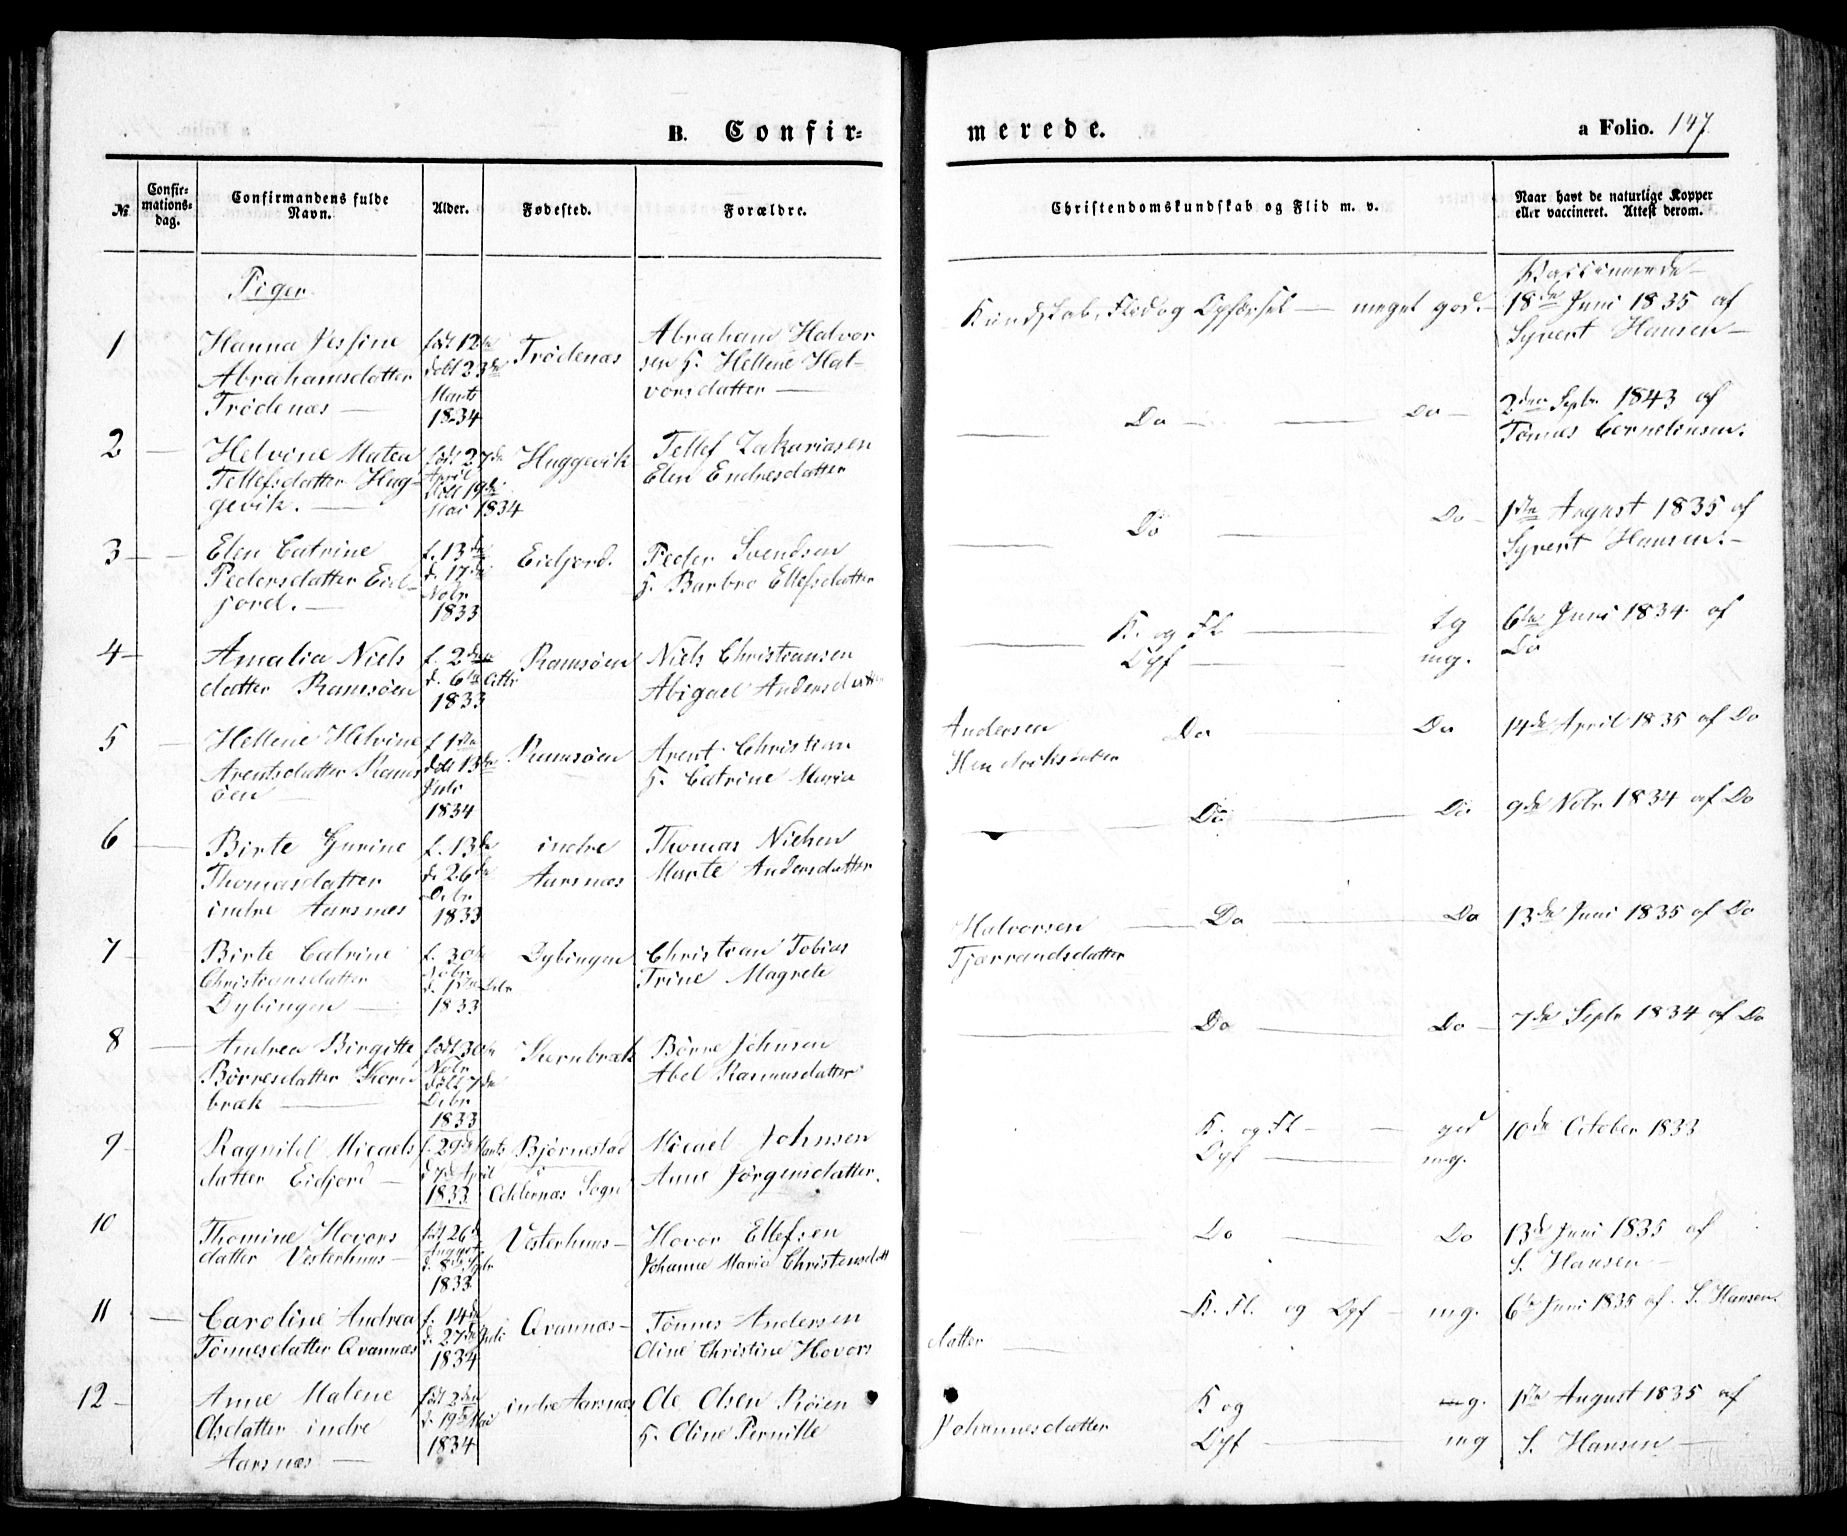 B. Confir=
merede.
a Folio. 147.
№
Confir=
mations=
dag.
Confirmandens fulde
Navn.
Alder.
Fødested.
Forældre.
Christendomskundskab og Flid m. v.
Naar havt de naturlige Kopper
eller vaccineret. Attest derom.
Piger.
Vaccinerede
1
Hanna Jessine
Abrahamsdatter
Trødenæs
født 12te
døbt 23de
Marts
1834
Trødenæs
Abraham Halvor
sen H. Hellene Hal-
vorsdatter
Kundskab, Flid og Opførsel — meget god.
18de Juni 1835 af
Syvert Hansen
2
Helvine Maten
Tellefsdatter Hug-
gevik.
født 27de
April
døbt 19de
Mai 1834
Huggevik
Tellef Zakariasen
Elen Endresdatter
Do — Do
2den Septr 1843 af
Tønnes Corneliusen.
3
Elen Catrine
Pedersdatter Eid-
jord.
f. 13de
d. 17de
Nobr
1833
Eidjord.
Peder Svendsen
H. Barbro Ellefsdatter
Do — Do
1ste August 1835 af
Syvert Hansen.
4
Amalia Niels
datter Ramsøen
f. 2den
d. 6te Octbr
1833
Ramsøen
Niels Christiansen
Abigael Andersdatter
K. og Fl — tg
Opf — mg.
6te Juni 1834 af
Do
5
Hellene Helvine
Arentsdatter Rams
øen
f. 1ste
døbt 13de
Juli
1834
Ramsøen
Arent Christian
H. Catrine Maria
Andersen
Hendriksdatter
Do Do
14de April 1835 af Do
6
Birte Gurine
Thomasdatter
indre Aarsnæs
f. 13de
d. 26de
Debr
1833
indre
Aarsnæs
Thomas Nielsen
Marte Andersdatter
Do — Do
9de Nobr 1834 af Do
7
Birte Catrine
Christiansdatter
Dybingen
f. 30te
Nobr
d. 1ste Debr
1833
Dybingen
Christian Tobias
Trine Magrete
Halvorsen
Tjærandsdatter
Do Do
13de Juni 1835 af Do
8
Andrea Birgitte
Børresdatter Kern
bræk
født 30te
Nobr
døbt 7de
Debr
1833
Kernbræk
Børre Johnsen
Abel Rasmusdatter
Do — Do
7de Septr 1834 af Do
9
Ragnild Micaels
datter Eidjord
f. 29de Marts
d 7de April
1833
Bjørnestad
i
Oddernæs Sogn
Micael Johnsen
Anne Jørgensdatter.
K. og Fl — god
Opf — mg.
10de October 1833
10
Thomine Hovors
datter Vesterhuus
født 26de
August
d. 8de Septbr
1833
Vesterhuus
Hovor Ellefsen
Johanne Maria Christensdatt
Do — Do
13de Juni 1835 af
S. Hansen
11
Caroline Andrea
Tønnesdatter Qvannæs
f. 14de
d. 27de Juli
1834
Qvannæs
Tønnes Andersen
Oline Christine Hovors
datter
K. Fl. og Opf — mg.
6te Juni 1835 af. S. Hansen.
12
Anne Malene
Olsdatter indre
Aarsnæs
født 2den
d. 19de Mai
1834
indre Aarsnæs
Ole Olsen Røien
H. Oline Pernille
Johannesdatter
K og g.
Opf — mg
1ste August 1835 af
S. Hansen